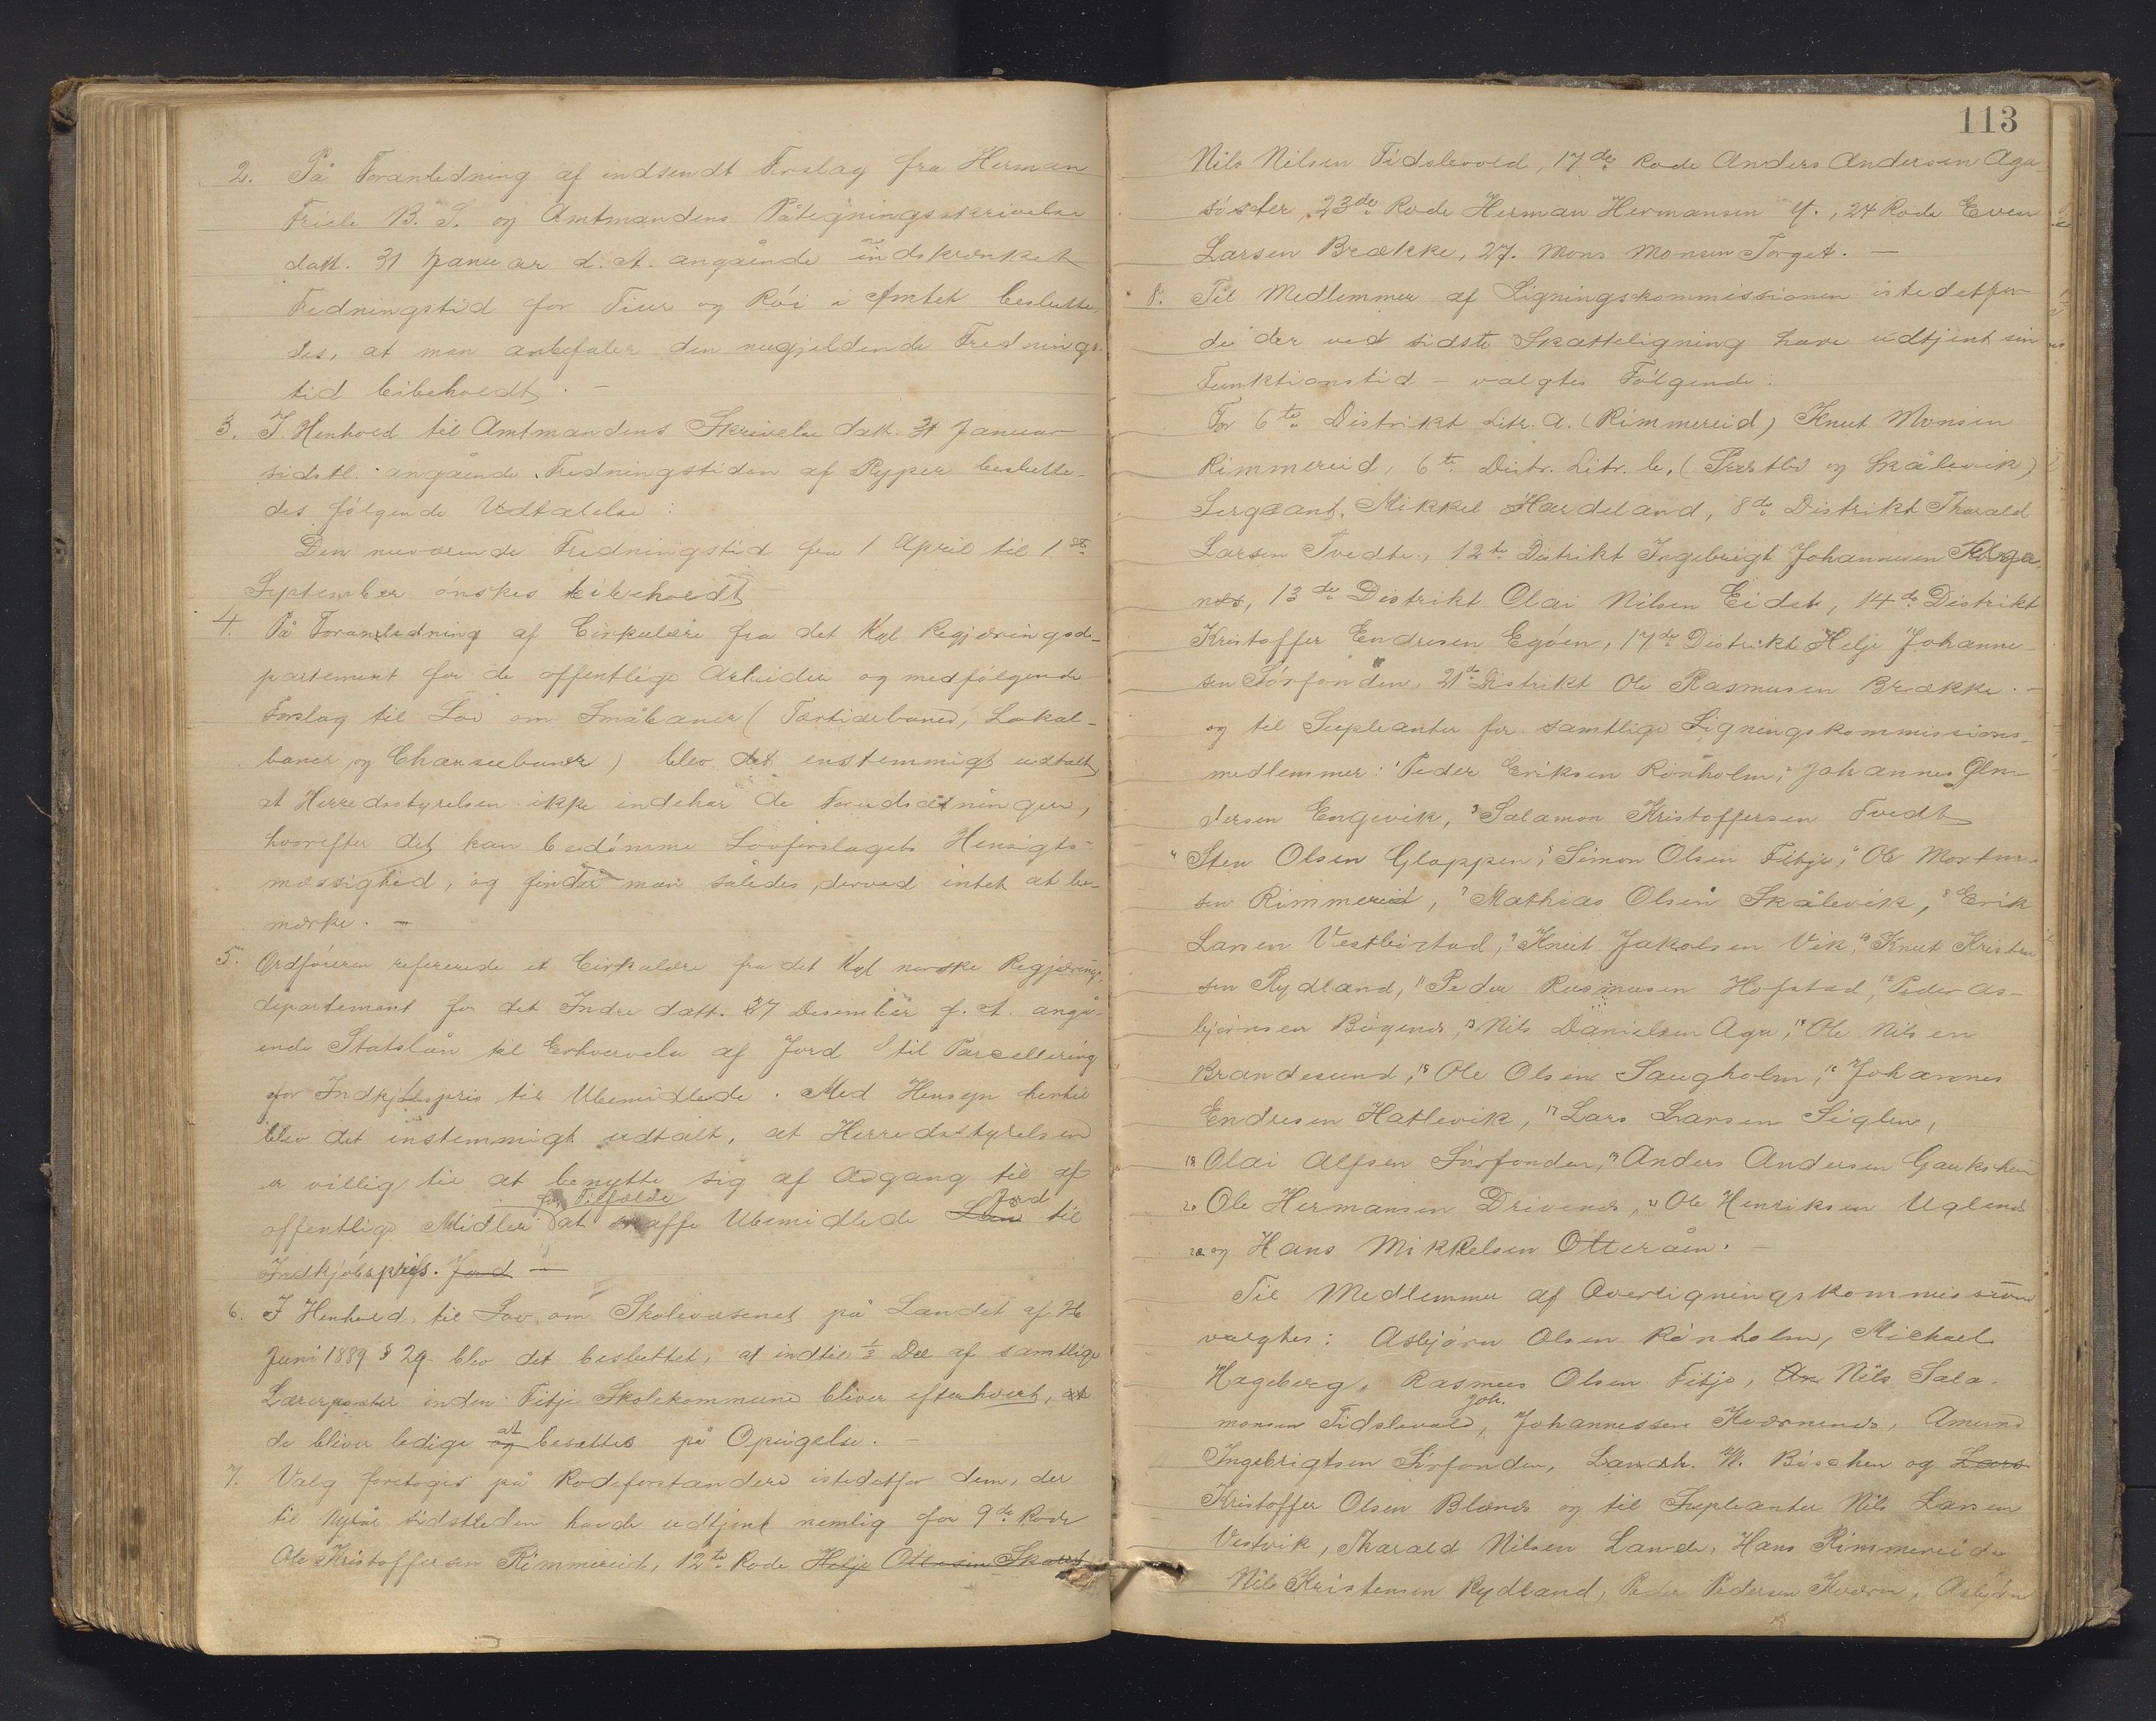 2. På Foranledning af indsendt Forslag fra Herman
Friele B. S. og Amtmandens Påtegningsskrivelse
datt. 31 Januar d. A. angående indskrænket
Fredningstid for Tiur og Röi i Amtet beslutte-
des, at man anbefaler den nugjeldende Frednings-
tid bibeholdt. —
3. I Henhold til Amtmandens Skrivelse datt. 31 Januar
sidstl. angående Fredningstiden af Ryper beslutte-
des følgende Udtalelse:
Den nuværende Fredningstid fra 1 April til 1ste
September ønskes bibeholdt
4. På Foranledning af Cirkulære fra det Kgl Regjæringsd-
partement for de offentlige Arbeider og medfølgende
Forslag til Lov om Småbaner (Tertiærbaner, Lokal-
baner og Chauseebaner) blev det enstemmigt udtalt,
at Herredsstyrelsen ikke indehar de Forudsætninger,
hvorefter det kan bedömme Lovforslagets Hensigts-
mæssighed, og finder man således derved intet at be-
mærke. —
5. Ordføreren refererede et Cirkulære fra det Kgl norske Regjærings-
departement for det Indre datt. 27 Desember f. A. angå-
ende Statslån til Erhvervelse af Jord til Parcellering
for Indkjöbspris til Ubemidlede. Med Hensyn hertil
blev det instemmigt udtalt, at Herredsstyrelsen
er villig til at benytte sig af Adgang til af
offentlige Midler for Tilfælde at skaffe Ubemidlede Lån Jord til
Indkjöbspris. Jord —
6. I Henhold til Lov om Skolevæsenet på Landet af 26
Juni 1889 § 29 blev det besluttet, at indtil 1/3 Del af samtlige
Lærerposter inden Fitje Skolekommune bliver efterhvert, at
de bliver ledige og at besættes på Opsigelse. —
7. Valg foretoges på Rodeforstandere istedetfor dem, der
til Nytår sidstleden havde udtjent nemlig for 9de Rode
Ole Kristoffersen Rimmereid, 12te Rode Helje Ottesen Skaar
113
Nils Nilsen Tidslevold, 17de Rode Anders Andersen Aga
söster, 23de Rode Herman Hermansen y., 24 Rode Even
Larsen Brække, 27. Mons Monsen Torget. —
8. Til Medlemmer af Ligningskommissionen istedetfor
de der ved sidste Skatteligning have udtjent sin
Funktionstid – valgtes Følgende:
For 6te Distrikt Litr. a. (Rimmereid) Knut Monsen
Rimmereid, 6te Distr. Litr. b. (Prestbö og Skålevik)
Sergeant Mikkel Hardeland, 8de Distrikt Tharald
Larsen Tvedte, 12te Distrikt Ingebrigt Johannesen
nes, 13de Distrikt Olai Nilsen Eide, 14de Distrikt
Kristoffer Endresen Egöen, 17de Distrikt Helje Johanne-
sen Sörfonden, 21de Distrikt Ole Rasmusen Brække. —
og til Supleanter for samtlige Ligningskommissions-
medlemmer: 1 Peder Eriksen Rönholm, 2 Johannes
dersen Engevik, 3 Salamon Kristoffersen Tvedt
4 Sten Olsen Gloppen, 5 Simon Olsen Fitje, 6 Ole Morten-
sen Rimmereid, 7 Mathias Olsen Skålevik, 8 Erik
Larsen Vestböstad, 9 Knut Jakobsen Vik, 10 Knut Kristen
sen Rydland, 11 Peder Rasmusen Hofstad, 12 Peder As-
björnsen Bögenes, 13 Nils Danielsen Aga, 14 Ole Nilsen
Brandesund, 15 Ole Olsen Saugholm, 16 Johannes
Endresen Hatlevik, 17 Lars Larsen Siglen,
18 Olai Alfsen Sörfonden, 19 Anders Andersen Gauks
20 Ole Hermansen Drivenes, 21 Ole Henriksen Uglenes
22 og Hans Mikkelsen Otteråen. —
Til Medlemmer af Overligningskommission
valgtes: Asbjörn Olsen Rönholm, Michael
Hageberg, Rasmus Olsen Fitje, An Nils Sala-
monsen Tidslevold, Joh. Johannessen Kværnenes, Amund
Ingebrigtsen Sörfonden, Landh. W. Böschen og Lars
Kristoffer Olsen Blænes og til Supleanter Nils Larsen
Vestvik, Tharald Nilsen Lande, Hans Rimmereide
Nils Kristensen Rydland, Peder Pedersen Kværn, Asbjörn